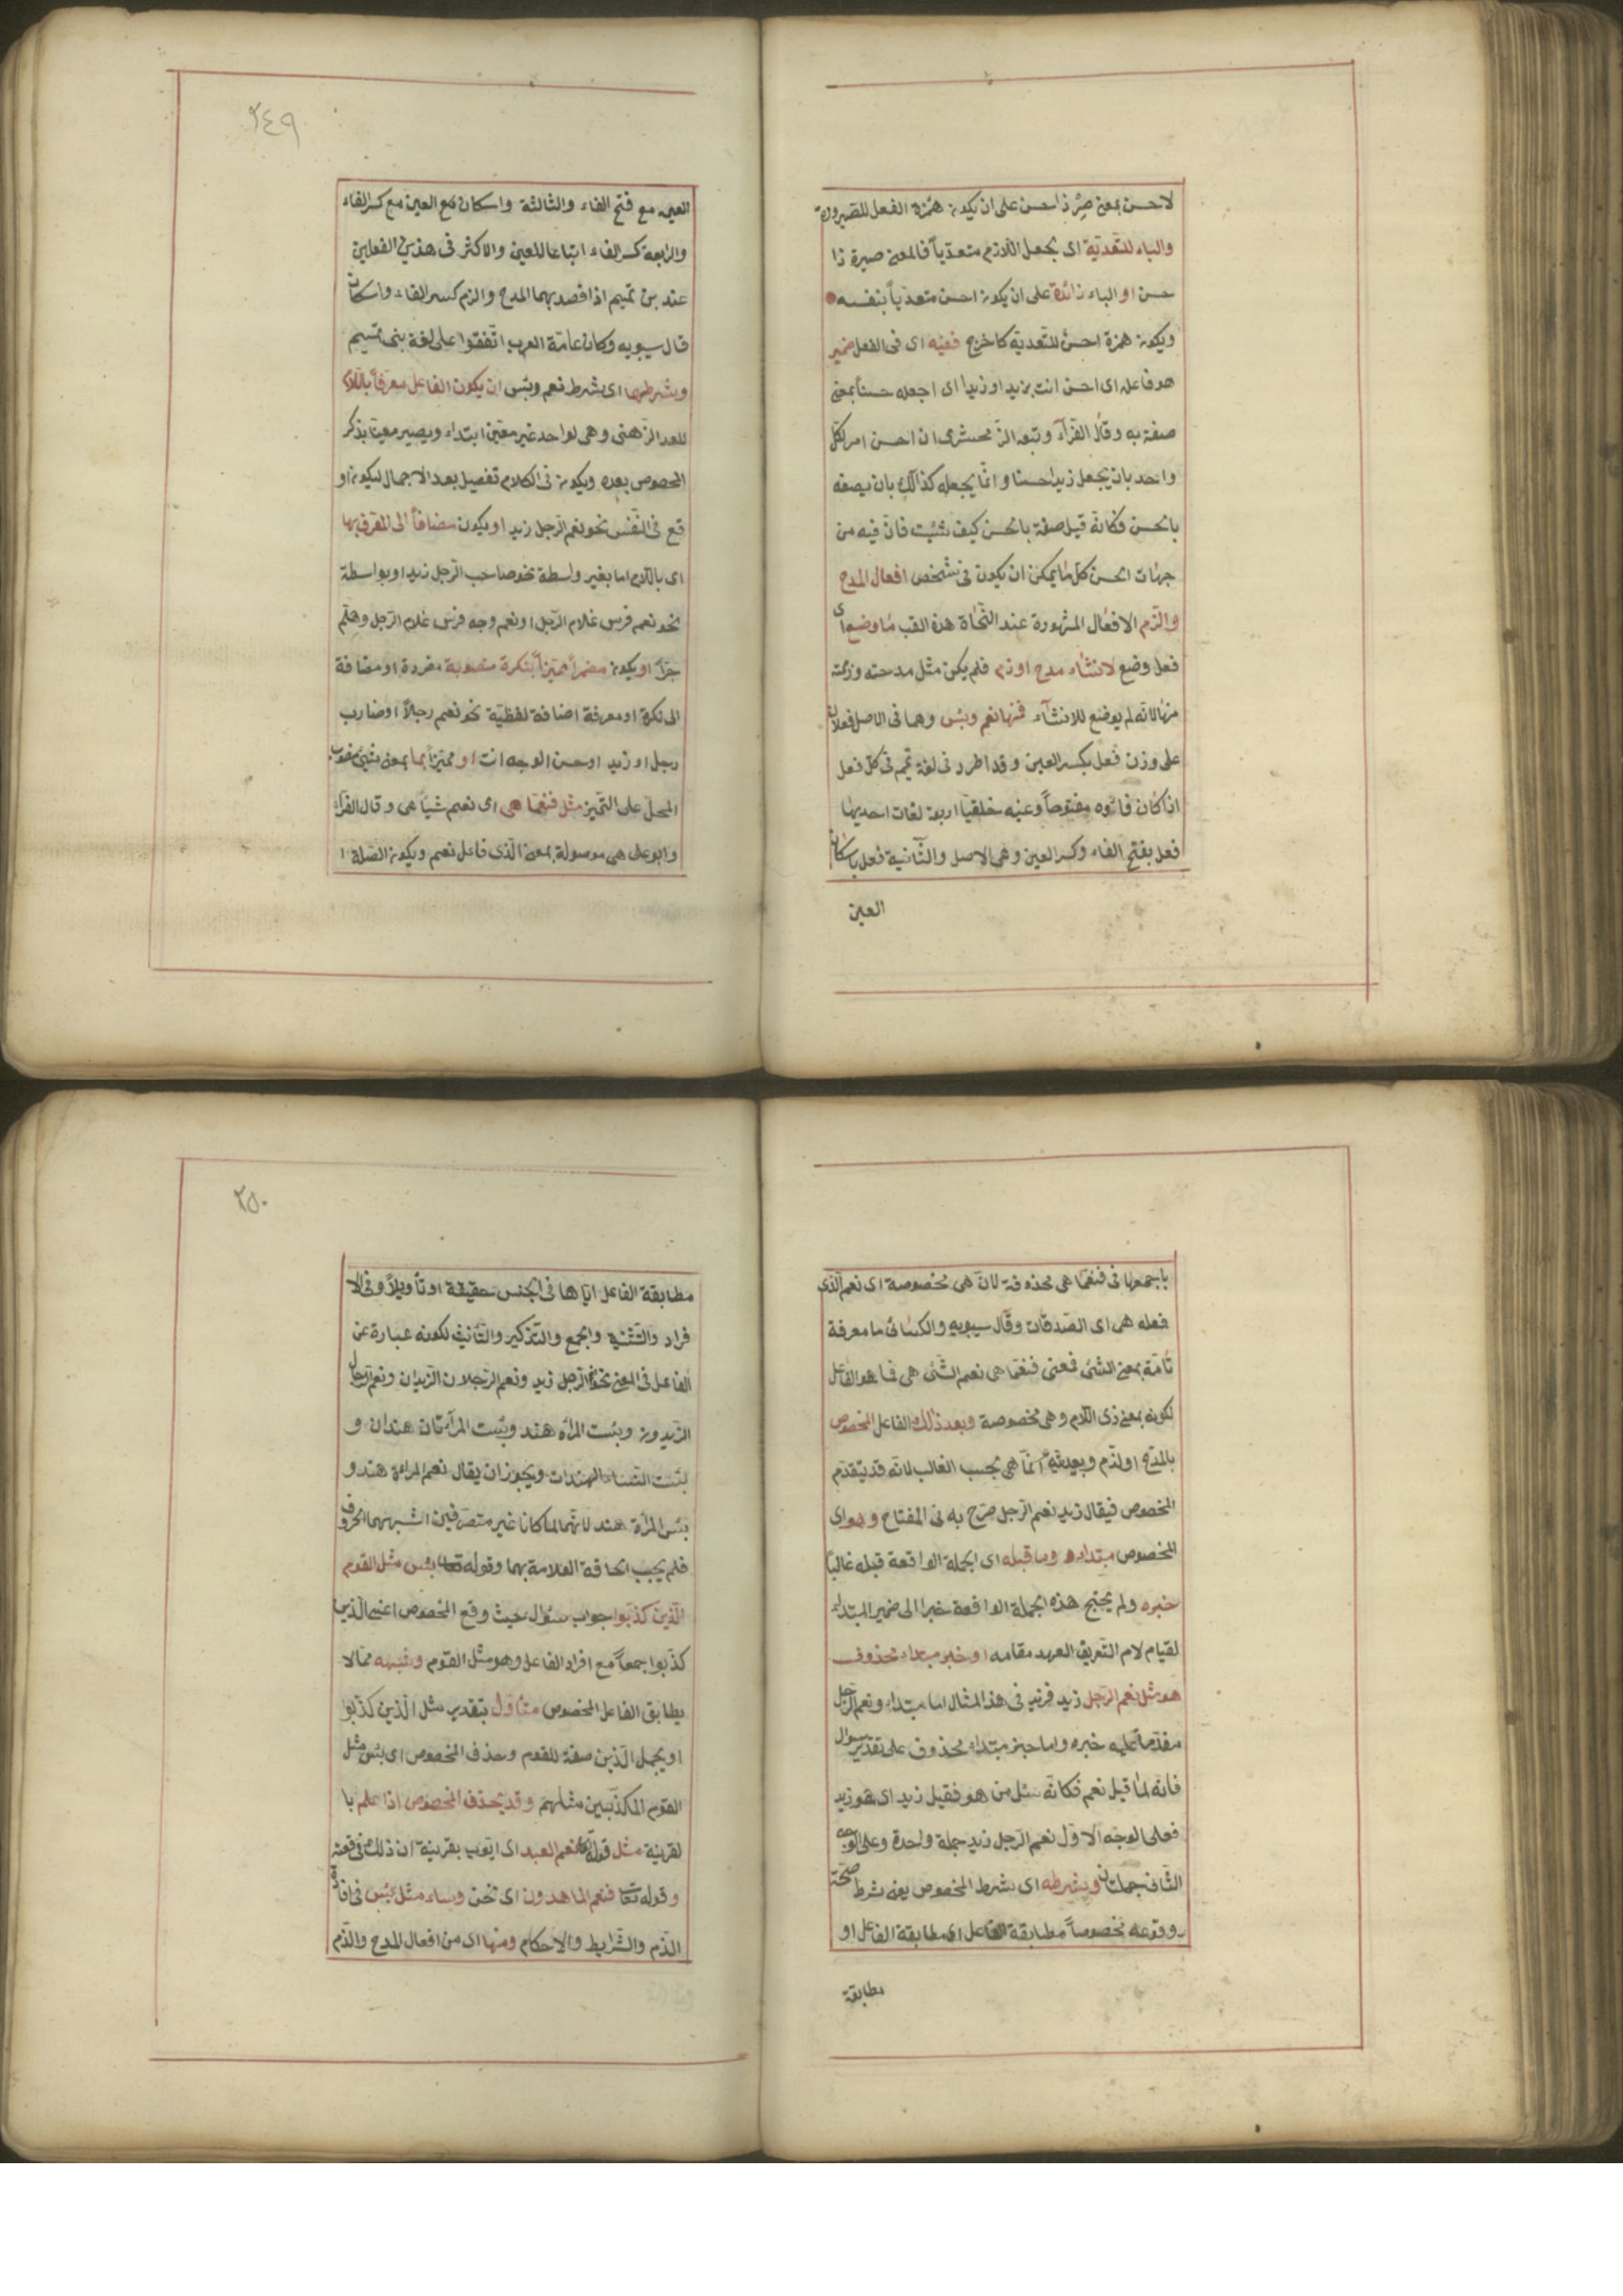 لاحسن بمعنى صِرْ ذا حسن على ان يكون همزة الفعل للصيرورة
والباء للتعدية اى بجعل اللازم متعدّياً فالمعنى صيره ذا
حسن او الباء زائدة على ان يكون احسن متعدّياً بنفسه
ويكون همزة احسن للتّعدية كاخرج ففيه اى فى الفعل ضمير
هو فاعله اى احسن انت بزيد او زيدا اى اجعله حسناً بمعنى
صفه به وقال الفرّآء وتبعه الزّمخشرى ان احسن امر لكلّ
واحد بان يجعل زيدا حسنا وانّما يجعله كذالك بان يصفه
بالحسن فكانّه قيل صفه بالحسن كيف شئت فانّ فيه من
جهات الحسن كلّ ما يمكن ان يكون فى شخص افعال المدح
والذّم الافعال المشهورة عند النّحاة هذه القب ما وضع اى
فعل وضع لانشاء مدح او ذم فلم يكن مثل مدحته وذممته
منها لانّه لم يوضع للانشآء فمنها نعم وبئس وهما فى الاصل فعلان
على وزن فَعِل بكسر العين وقد اطرد فى لغة تميم فى كلّ فعل
اذا كان فاؤه مفتوحاً وعينه حلقيّا اربع لغات احديها
فعل بفتح الفاء وكسر العين وهى الاصل والثّانية فعل باسكان
العين
٢٤٩
العين مع فتح الفاء والثالثة واسكان مع العين مع كسر الفاء
والرّابعة كسر الفاء اتباعا للعين والاكثر فى هذين الفعلين
عند بن تميم اذا قصد بهما المدح والزم كسر الفاء واسكان
قال سيبويه وكان عامّة العرب اتّفقوا على لغة بنى تميم
وبشرطهما اى بشرط نعم وبئس ان يكون الفاعل معرفاً باللام
للعد الزّهنى وهى لواحد غير معيّن ابتداء ويصير معيّنا بذكر
المخصوص بعده ويكون فى الكلام تفصيل بعد الاجمال ليكون او
قع فى النّفس نحو نعم الرّجل زيد او يكون مضافاً الى المعرف بها
اى باللام اما بغير واسطة نحو صاحب الرّجل زيد او بواسطة
نحو نعم فرس غلام الرّجل او نعم وجه فرس غلام الرّجل وهلم
جرّا او يكون مضمراً مميّزاً بنكرة منصوبة مفردة او مضافة
الى نكرة او معرفة اضافة لفظيّة نحو نعم رجلاً او ضارب
رجل او زيد او حسن الوجه انت او مميّزاً بما بمعنى شئ منصوب
المحلّ على التّميز مثل فنعمّا هى اى نعم شياً هى وقال الفرّاء
وابو على هى موصولة بمعنى الّذى فاعل نعم ويكون الصّلة
باجمعها فى فنعمّا هى محذوفة لانّ هى مخصوصة اى نعم الّذى
فعله هى اى الصّدقات وقال سيبويه والكسائى ما معرفة
تامّة بمعنى الشّئ فمعنى فنعمّا هى نعم الشّئ هى فما هو الفاعل
لكونه بمعنى ذى اللام وهى مخصوصة وبعد ذلك الفاعل المخصوص
بالمدح او الذّم وبعديّته انّما هى بحسب الغالب لانّه قد يتقدّم
المخصوص فيقال زيد نعم الرّجل صرّح به فى المفتاح وهو اى
المخصوص مبتداء وما قبله اى الجملة الواقعة قبله غالباً
خبره ولم يحتج هذه الجملة الواقعة خبرا الى ضمير المبتداء
لقيام لام التّعريف العهد مقامه او خبر مبتداء محذوف
هو مثل نعم الرّجل زيد فزيد فى هذا المثال اما مبتداء ونعم الرّجل
مقدّماً عليه خبره واما خبر مبتداء محذوف على تقدير سؤال
فانه لمّا قيل نعم فكانّه سئل من هو فقيل زيد اى هو زيد
فعلى الوجه الاوّل نعم الرّجل زيد جملة واحدة وعلى الوجه
الثّانى جملتان وبشرطه اى شرط المخصوص يعنى شرط صحّة
وقوعه مخصوصاً مطابقة الفاعل اى مطابقة الفاعل او
مطابقة
٢٥٠
مطابقة الفاعل ايّاها فى الجنس حقيقة او تأويلاً وفى الا
فراد والتّثنية والجمع والتّذكير والتّأنيث لكونه عبارة عن
الفاعل فى المعنى نحو نعم الرّجل زيد ونعم الرّجلان الزّيدان ونعم الرّجال
الزّيدون وبئست المرأة هند وبئست المرأتان هندان و
بئست النّساء الهندات ويجوز ان يقال نعم المراءة هند و
بئس المرأة هند لانّهما لما كانا غير متصرّفين اشبههما الحروف
فلم يجب الحاقة العلامة بهما وقوله تعالى بئس مثل القوم
الّذين كذّبوا جواب سؤال حيث وقع المخصوص اعنى الّذين
كذّبوا جمعاً مع افراد الفاعل وهو مثل القوم وشبهه ممّا لا
يطابق الفاعل المخصوص متأوّل بتقدير مثل الّذين كذّبوا
او يجعل الّذين صفة للقوم وحذف المخصوص اى بئس مثل
القوم المكذّبين مثلهم وقد يحذف المخصوص اذا علم با
لقرينة مثل قوله تعالى نعم العبد اى ايّوب بقرينة ان ذلك فى قصّته
وقوله تعالى فنعم الماهدون اى نحن وساء مثل بئس فى افادة
الذّم والشّرايط والاحكام ومنها اى من افعال المدح والذّم